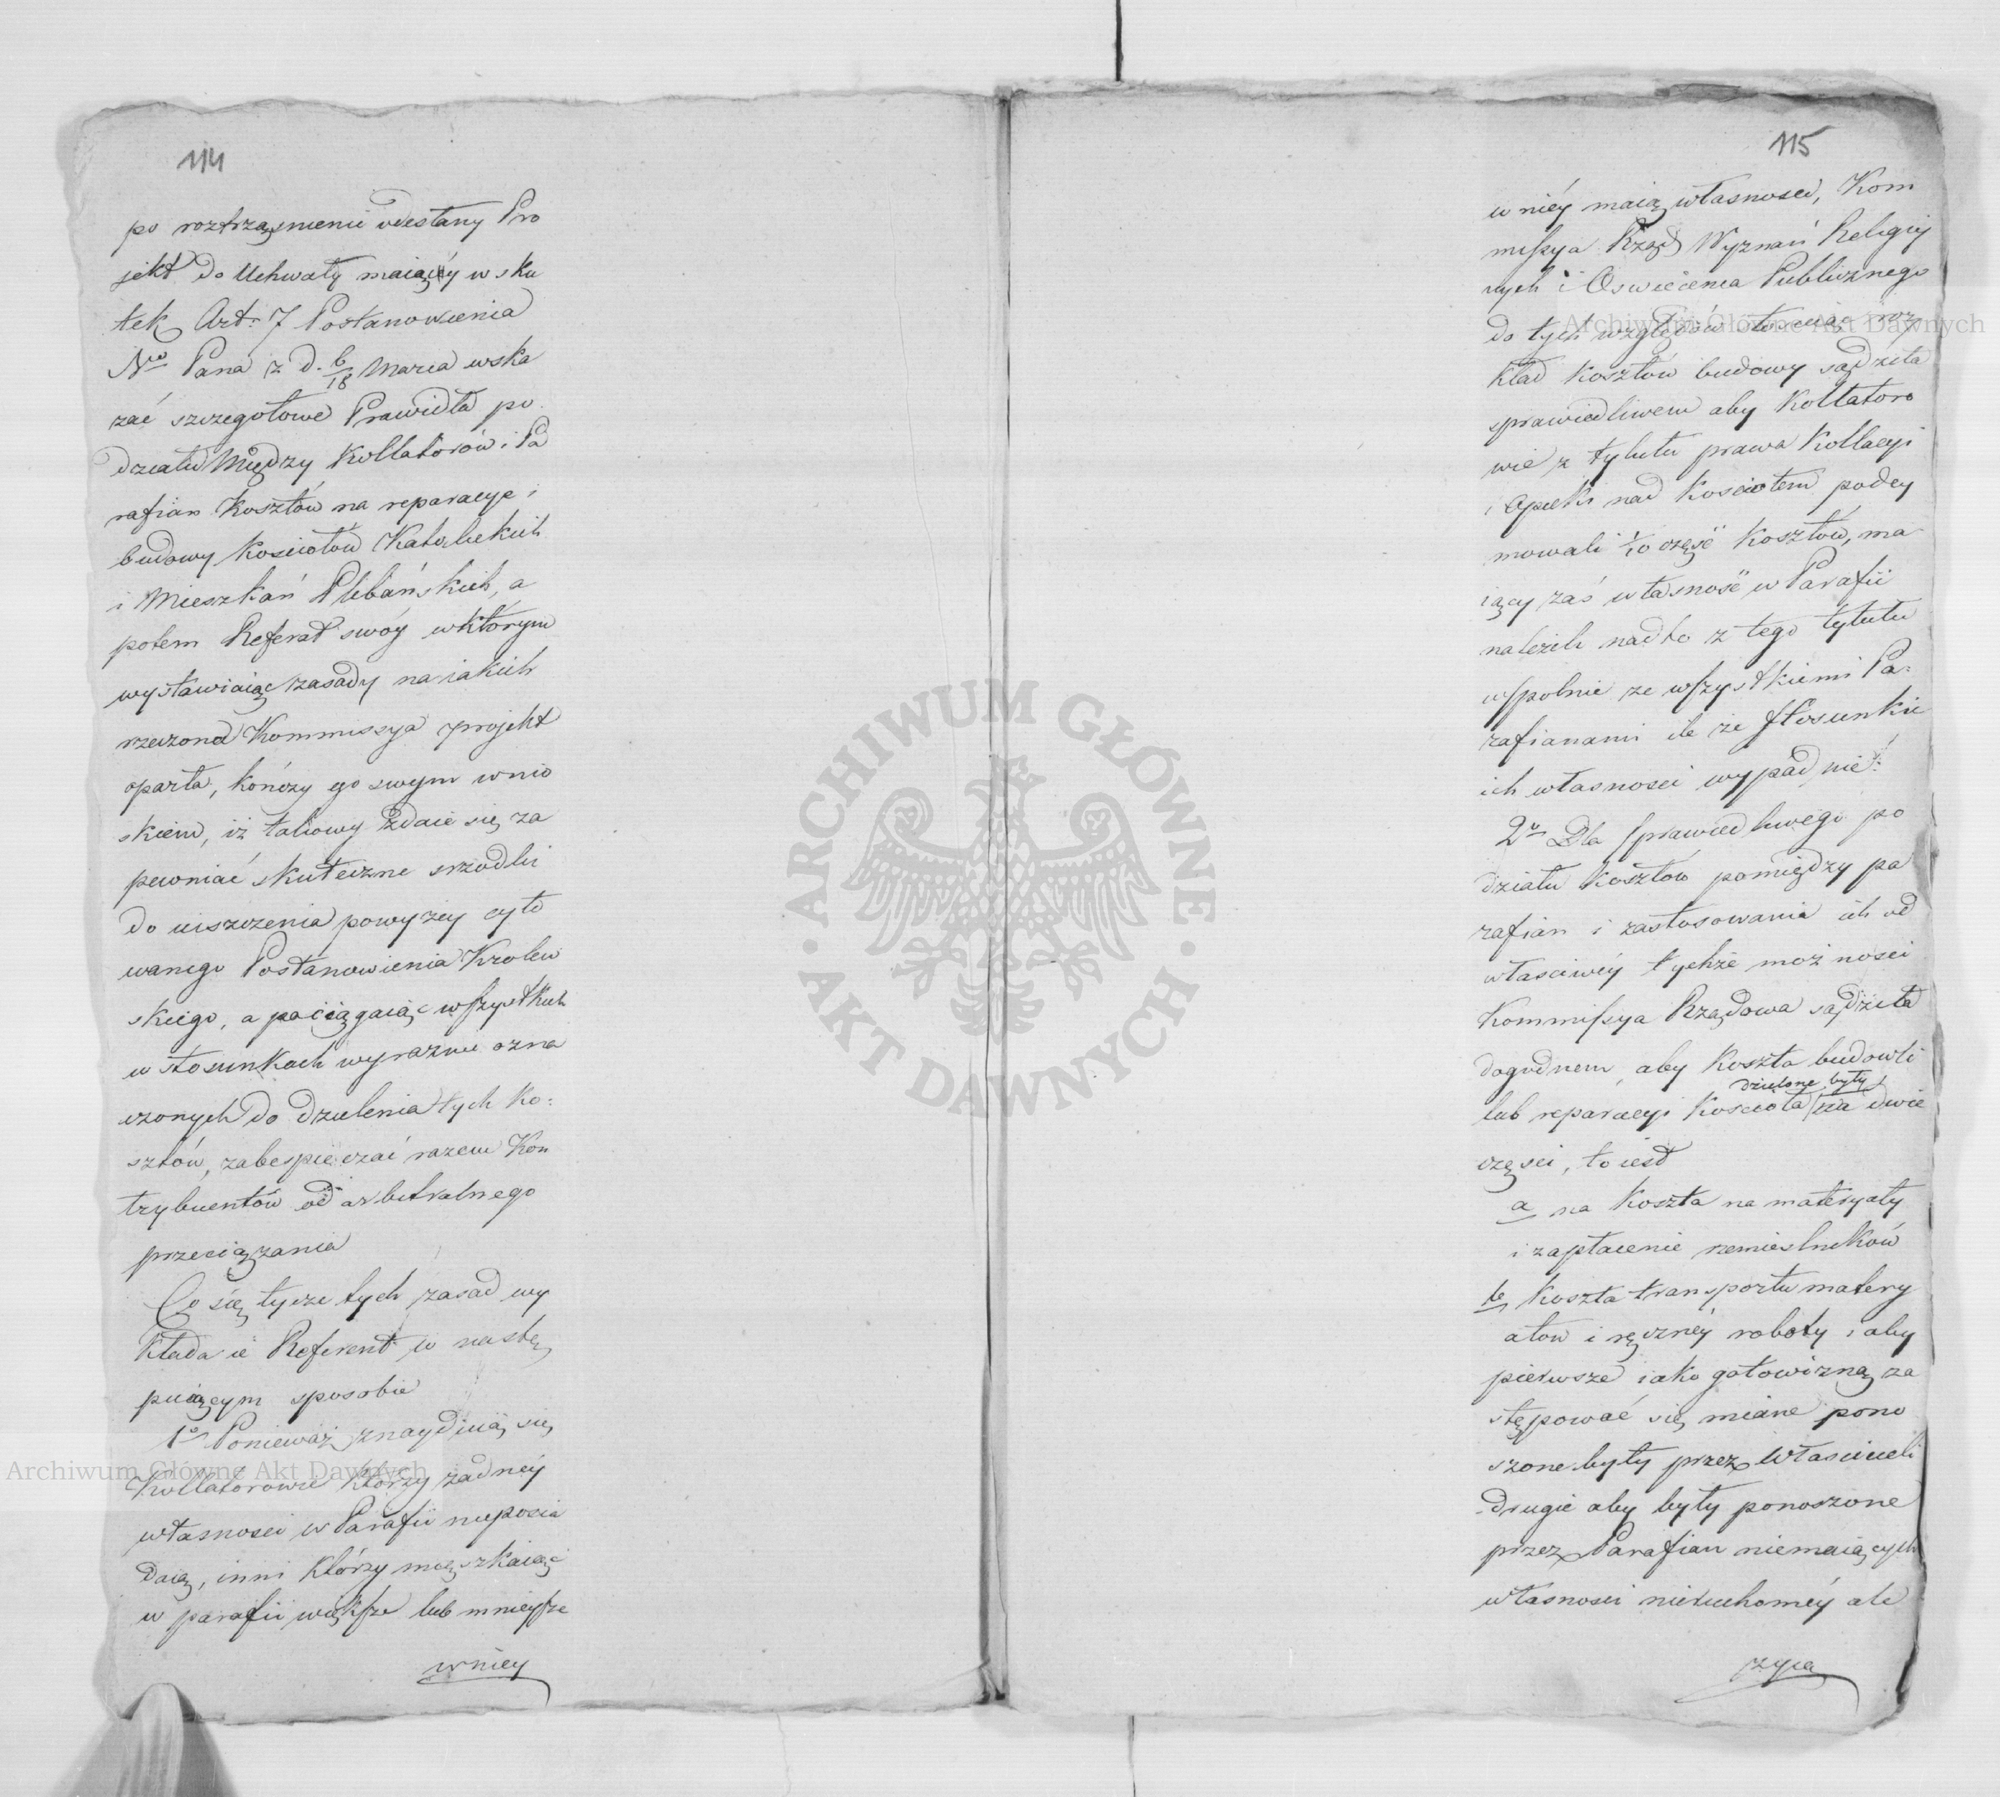 114
po roztrząsnieniu odesłany Pro
jekt do Uchwały maiący w sku
tek Art: 7 Postanowienia
Nº Pana z d. 6/18 Marca wska
zać szczegołowe Prawidła po
działu Między Kollatorów i Pa
rafian Kosztów na reparacye i
budowy Kosciołów Katolickich
i Mieszkań Plebańskich, a
potem Referat swóy w którym
wystawiaiąc zasady na iakich
rzeczona Kommissya projekt
oparła, kończy go swym wnio
skiem, iż takowy zdaie się za
pewniać skuteczne srzodki
do uiszczenia powyzey cyto
wanego Postanowienia Krolew
skiego, a pociągaiąc wszystkich
w stosunkach wyraznie ozna
czonych do dzielenia tych Ko:
sztów, zabespieczać razem Kon
trybuentów od arbitralnego
przeciązania
Co się tycze tych zasad wy
kłada ie Referent w nastę
puiącym sposobie
1º Ponieważ znayduią się
Kollatorowie którzy żadnéy
własnosci w Parafii nieposia
daią, inni którzy mieszkaiąc
w parafii większe lub mnieysze
w niey
115
w niéy maią własnosci, Kom
missya Rząd Wyznań Religiy
nych i Oswiecenia Publicznego
do tych względów stosuiąc roz
kład kosztów budowy sądziła
sprawiedliwem aby Kollatoro
wie z tytułu prawa Kollacyi
i Opieki nad Kosciołem podey
mowali 1/10 część Kosztów, ma
iący zaś własność w Parafii
należeli nadto z tego tytułu
wspolnie ze wszystkiemi Pa-
rafianami ile ze stosunku
ich własnosci wypadnie:
2º Dla sprawiedliwego po
działu kosztów pomiędzy pa
rafian i zastosowania ich od
własciwéy tychże możnosci
Kommissya Rządowa sądziła
dogodnem, aby koszta budowli
dzielone były
lub reparacyi Kościoła na dwie
częsci, to iest
a na Koszta na materyały
i zapłacenie rzemieslników
b Koszta transportu matery
ałow i ręcznéy roboty i aby
pierwsze iako gotowizną za
stępować się miane pono
szone były przez Własicieli
drugie aby były ponoszone
przez Parafian niemaiących
własnosci nieruchoméy ale
zyią
ARCHIWUM GŁÓWNE · AKT DAWNYCH ·
Archiwum Główne Akt Dawnych
Archiwum Główne Akt Dawnych